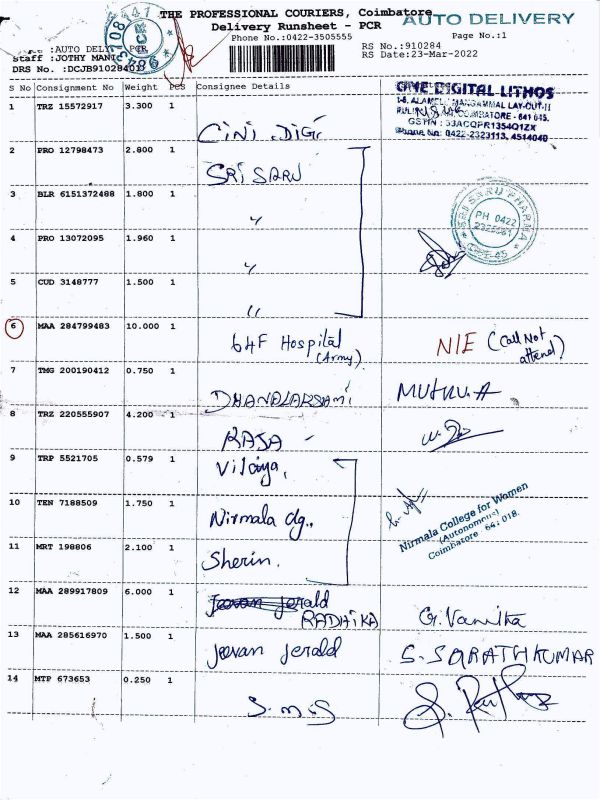 THE PROFESSIONAL COURIERS, Coimbatore
AUTO DELIVERY
Delivery Runsheet - PCR
Phone No:0422-3505555
Page No.:1
:AUTO DELIV PCR
RS No.:910284
Staff :JOTHY MANI
RS Date:23-Mar-2022
DRS No. :DCJB910284013
S No Consignment No Weight PCS Consignee Details
1 TRZ 15572917 3.300 1 CINI DIGI
CINE DIGITAL LITHOS
COIMBATORE - 641 045.
GSTIN : 33ACQPR1354Q1ZX
Phone No: 0422-2323113, 4514040
2 PRO 12798473 2.800 1 SRI SARU
3 BLR 6151372488 1.800 1 "
SRI SARU PHARMA
PH 0422
CBE-45
4 PRO 13072095 1.960 1 "
5 CUD 3148777 1.500 1 "
6 MAA 284799483 10.000 1 64F Hospital (Army) NIE (Call Not attend)
7 TMG 200190412 0.750 1 DHANALAKSAMI MUTHU.A
8 TRZ 220555907 4.200 1 RAJA -
9 TRP 5521705 0.579 1 Vijaya,
10 TEN 7188509 1.750 1 Nirmala clg.,
Nirmala College for Women
(Autonomous)
Coimbatore 641 018.
11 MRT 198806 2.100 1 Sherin.
12 MAA 289917809 6.000 1 Jovan Jerald
RADHIKA G. Vanitha
13 MAA 285616970 1.500 1 Jovan Jerald S. SARATHKUMAR
14 MTP 673653 0.250 1 S.M.S